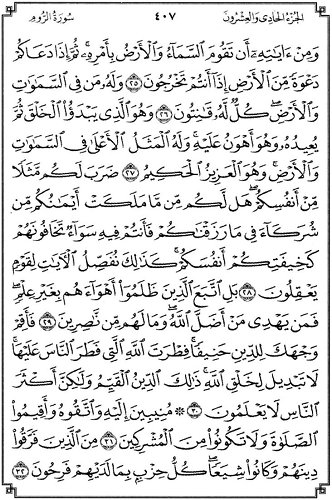 سُورَةُ الرُّومِ ٤٠٧ الجُزْءُ الحَادِى وَالعِشْرُونَ
وَمِنْ ءَايَٰتِهِۦٓ أَن تَقُومَ ٱلسَّمَآءُ وَٱلْأَرْضُ بِأَمْرِهِۦ ۚ ثُمَّ إِذَا دَعَاكُمْ
دَعْوَةً مِّنَ ٱلْأَرْضِ إِذَآ أَنتُمْ تَخْرُجُونَ ٢٥ وَلَهُۥ مَن فِى ٱلسَّمَٰوَٰتِ
وَٱلْأَرْضِ ۖ كُلٌّ لَّهُۥ قَٰنِتُونَ ٢٦ وَهُوَ ٱلَّذِى يَبْدَؤُا۟ ٱلْخَلْقَ ثُمَّ
يُعِيدُهُۥ وَهُوَ أَهْوَنُ عَلَيْهِ ۚ وَلَهُ ٱلْمَثَلُ ٱلْأَعْلَىٰ فِى ٱلسَّمَٰوَٰتِ
وَٱلْأَرْضِ ۚ وَهُوَ ٱلْعَزِيزُ ٱلْحَكِيمُ ٢٧ ضَرَبَ لَكُم مَّثَلًا
مِّنْ أَنفُسِكُمْ ۖ هَل لَّكُم مِّن مَّا مَلَكَتْ أَيْمَٰنُكُم مِّن
شُرَكَآءَ فِى مَا رَزَقْنَٰكُمْ فَأَنتُمْ فِيهِ سَوَآءٌ تَخَافُونَهُمْ
كَخِيفَتِكُمْ أَنفُسَكُمْ ۚ كَذَٰلِكَ نُفَصِّلُ ٱلْءَايَٰتِ لِقَوْمٍ
يَعْقِلُونَ ٢٨ بَلِ ٱتَّبَعَ ٱلَّذِينَ ظَلَمُوٓا۟ أَهْوَآءَهُم بِغَيْرِ عِلْمٍ ۖ
فَمَن يَهْدِى مَنْ أَضَلَّ ٱللَّهُ ۖ وَمَا لَهُم مِّن نَّٰصِرِينَ ٢٩ فَأَقِمْ
وَجْهَكَ لِلدِّينِ حَنِيفًا ۚ فِطْرَتَ ٱللَّهِ ٱلَّتِى فَطَرَ ٱلنَّاسَ عَلَيْهَا ۚ
لَا تَبْدِيلَ لِخَلْقِ ٱللَّهِ ۚ ذَٰلِكَ ٱلدِّينُ ٱلْقَيِّمُ وَلَٰكِنَّ أَكْثَرَ
ٱلنَّاسِ لَا يَعْلَمُونَ ٣٠ ۞ مُنِيبِينَ إِلَيْهِ وَٱتَّقُوهُ وَأَقِيمُوا۟
ٱلصَّلَوٰةَ وَلَا تَكُونُوا۟ مِنَ ٱلْمُشْرِكِينَ ٣١ مِنَ ٱلَّذِينَ فَرَّقُوا۟
دِينَهُمْ وَكَانُوا۟ شِيَعًا ۖ كُلُّ حِزْبٍۭ بِمَا لَدَيْهِمْ فَرِحُونَ ٣٢